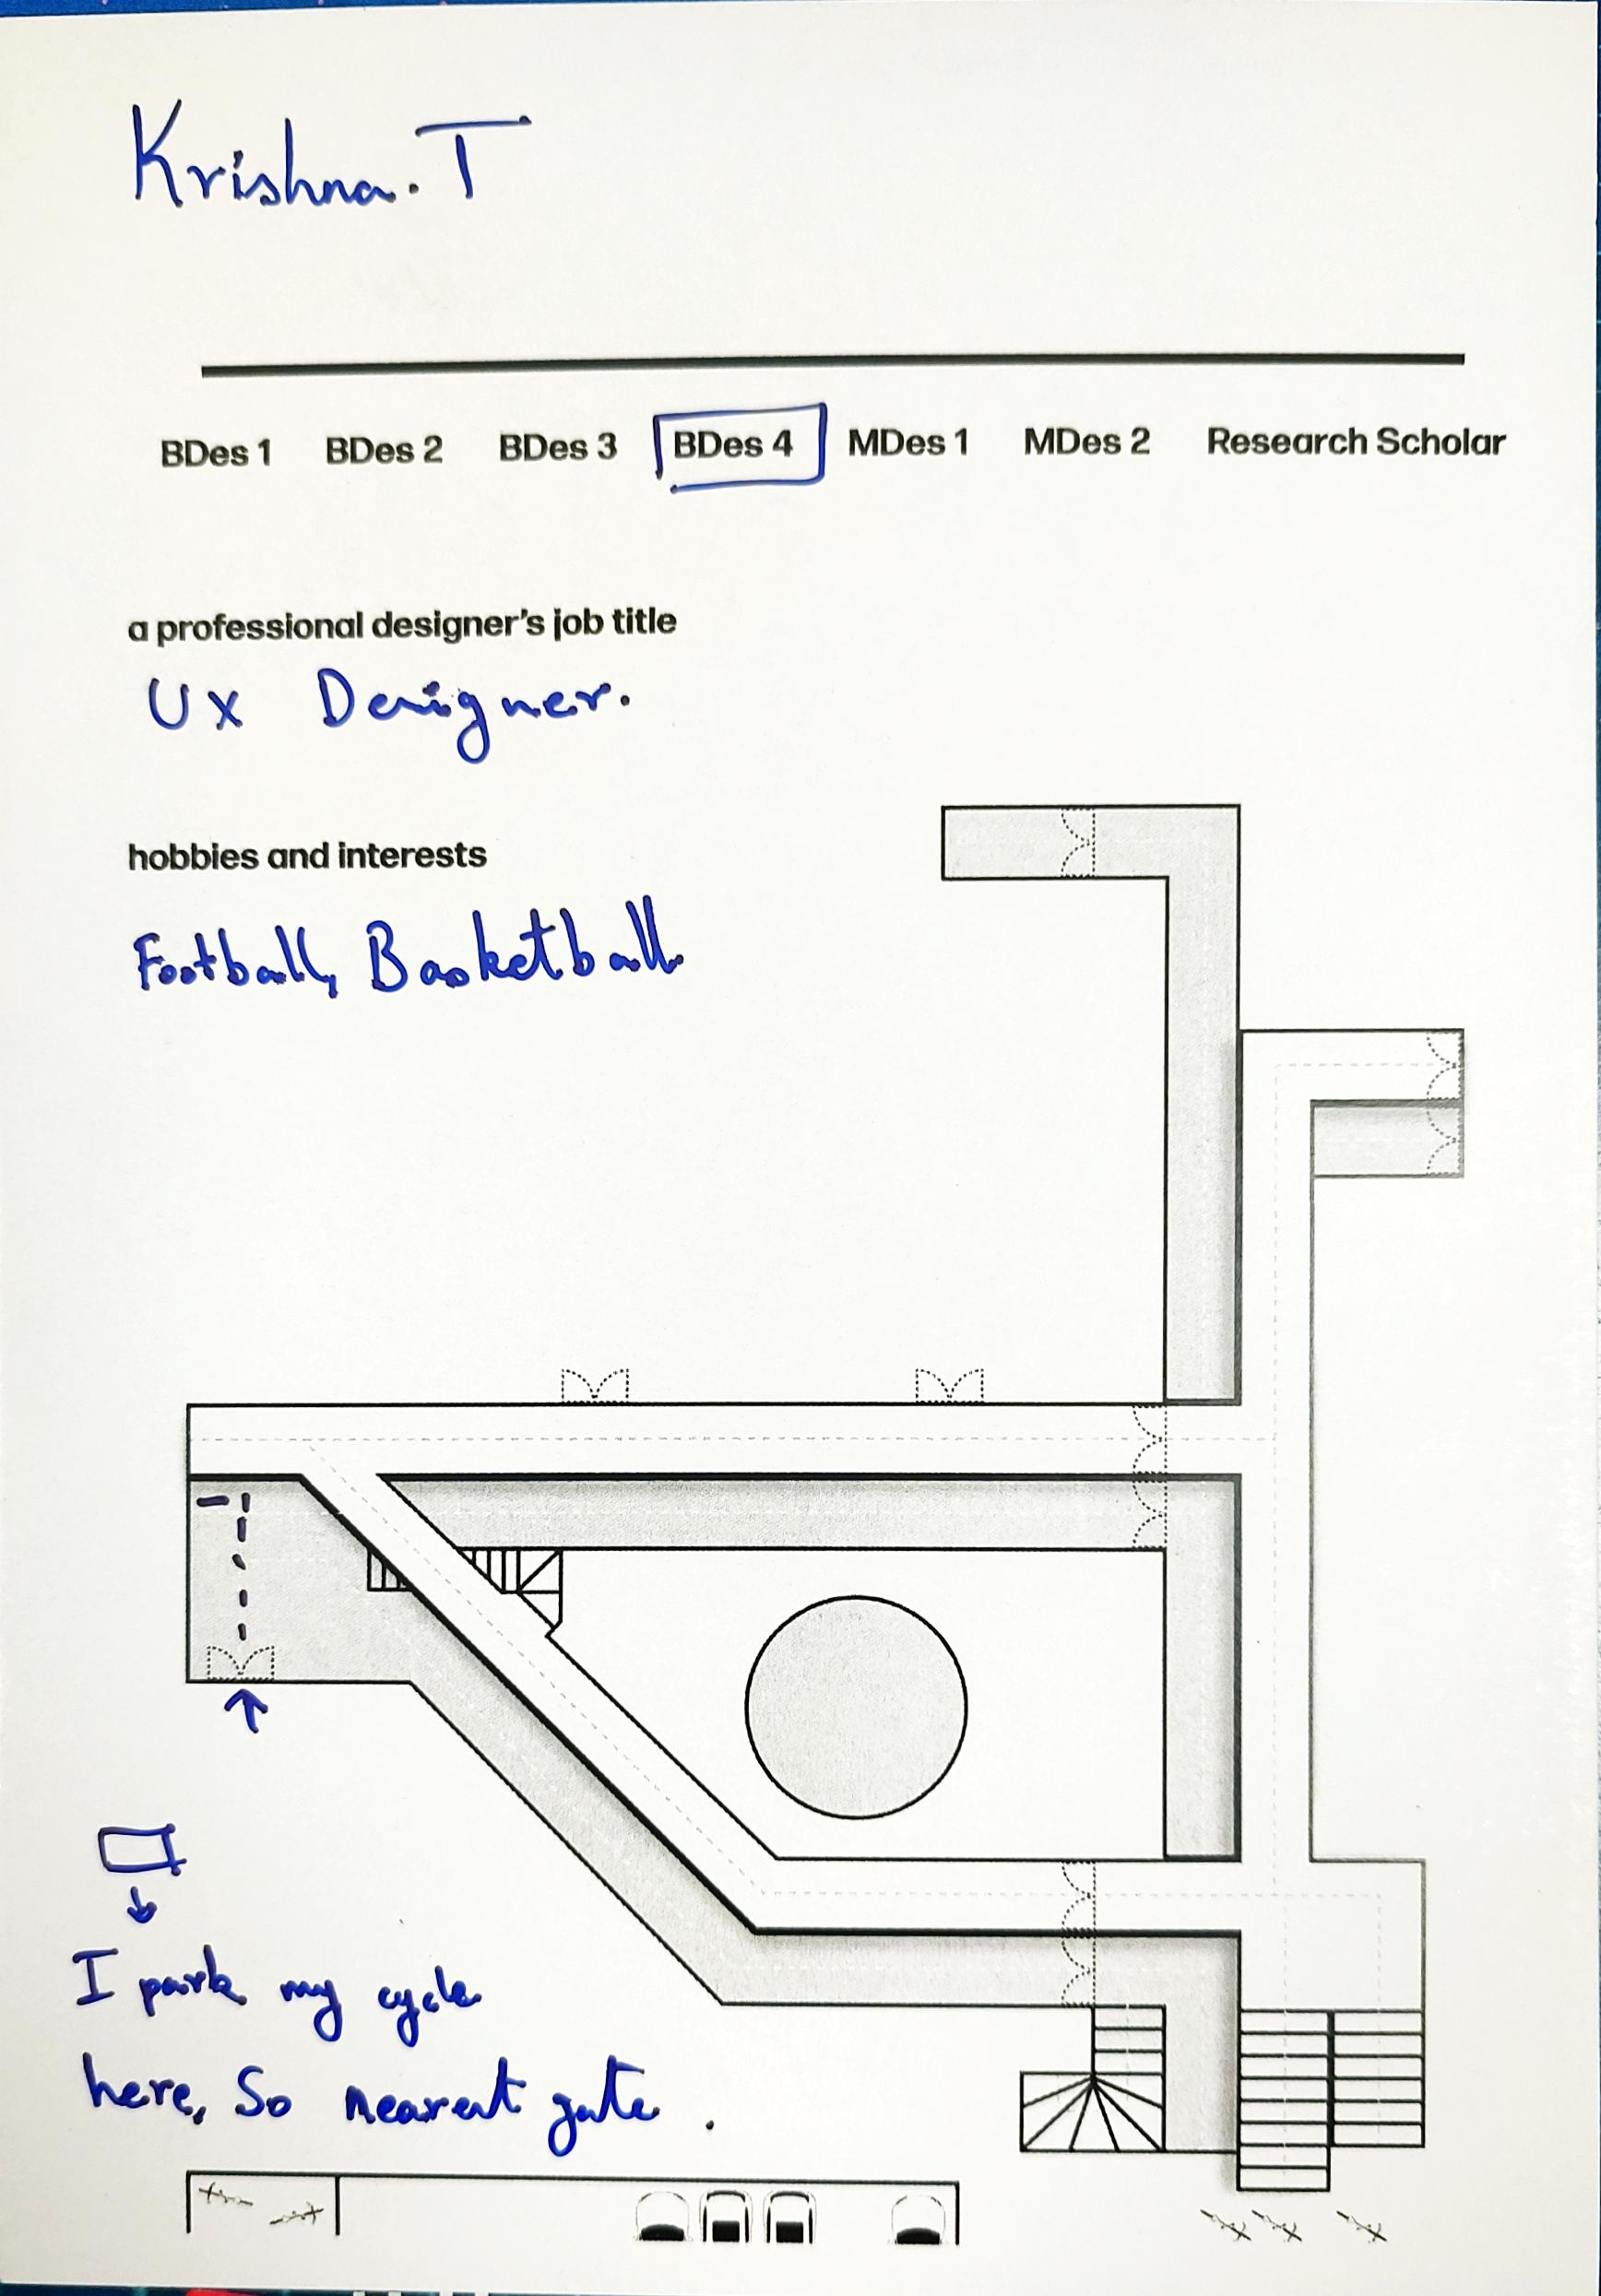 Krishna. T
BDes 1 BDes 2 BDes 3 BDes 4 MDes 1 MDes 2 Research Scholar
a professional designer's job title
UX Designer.
hobbies and interests
Football, Basketball
I park my cycle
here, So nearest gate.